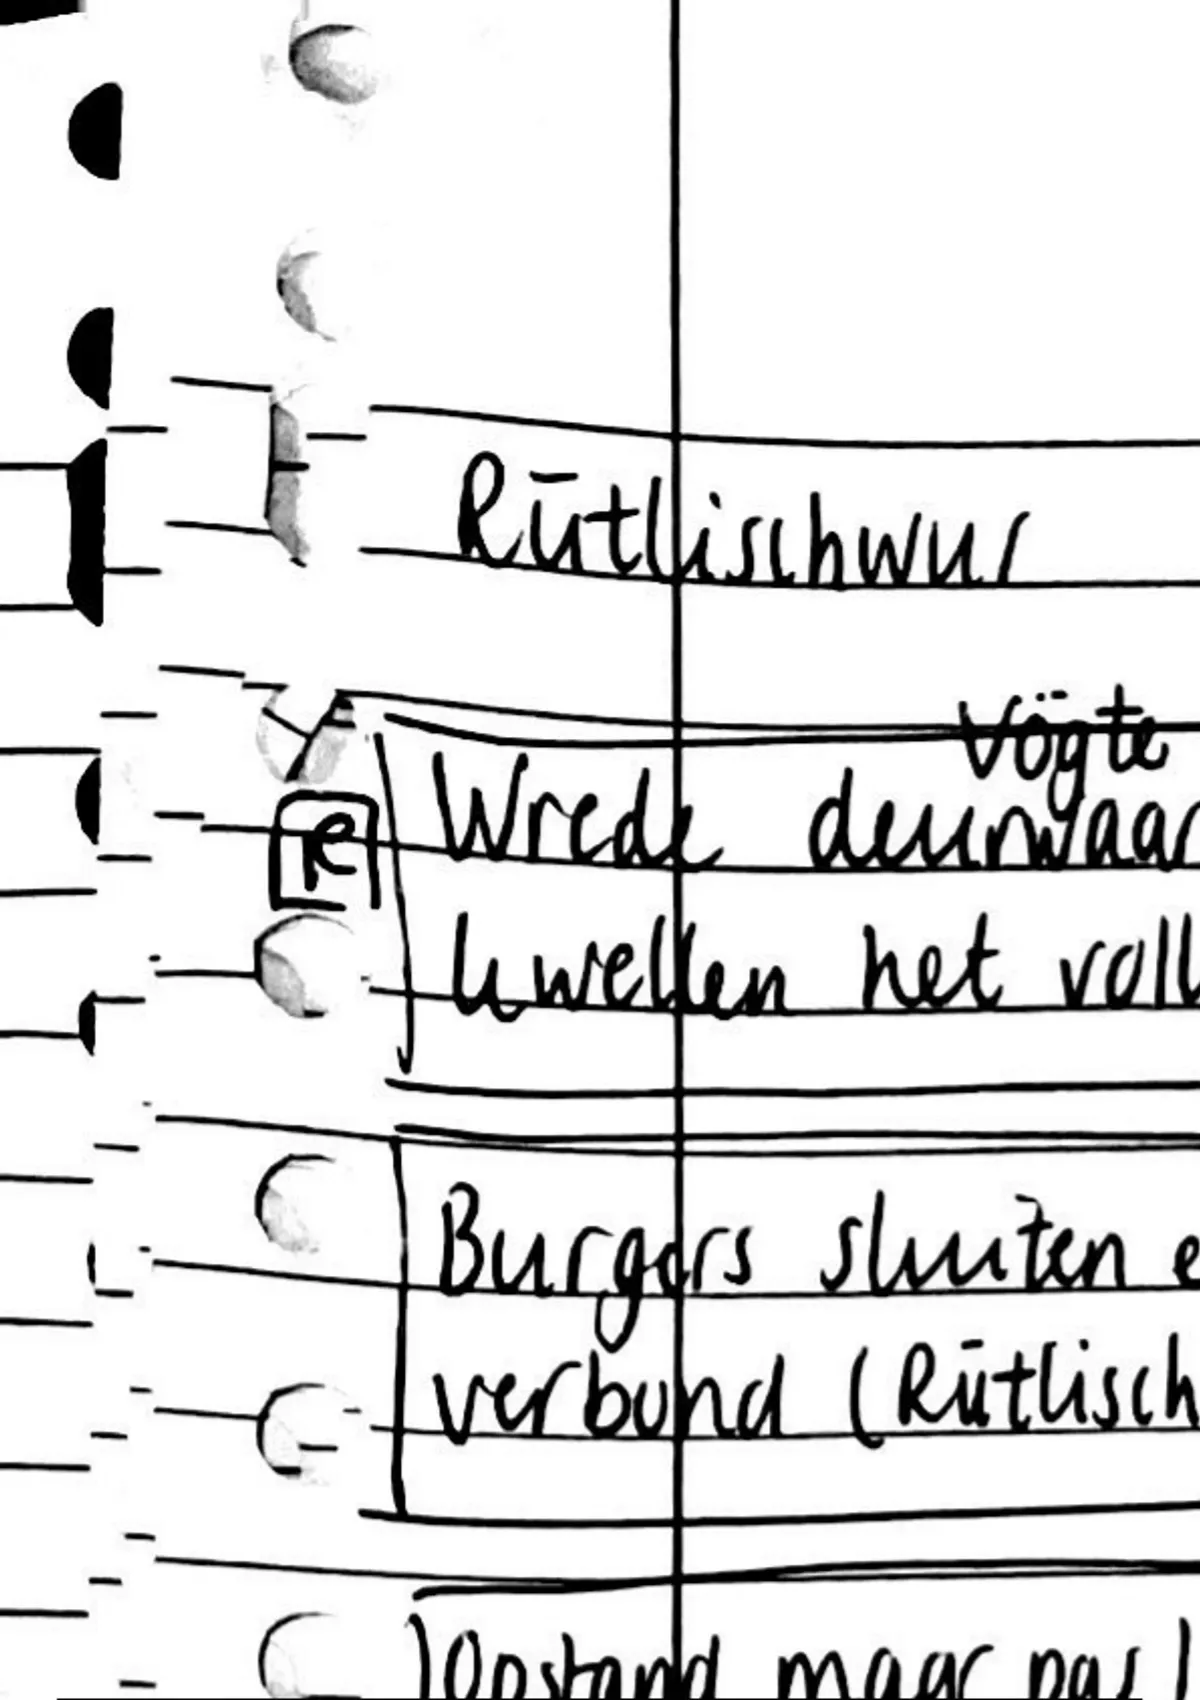 Rütlischwur
Vögte
Wrede deurwaar
kwellen het volk
R
Burgers sluiten e
verbond (Rütlisch
Opstand maar pas